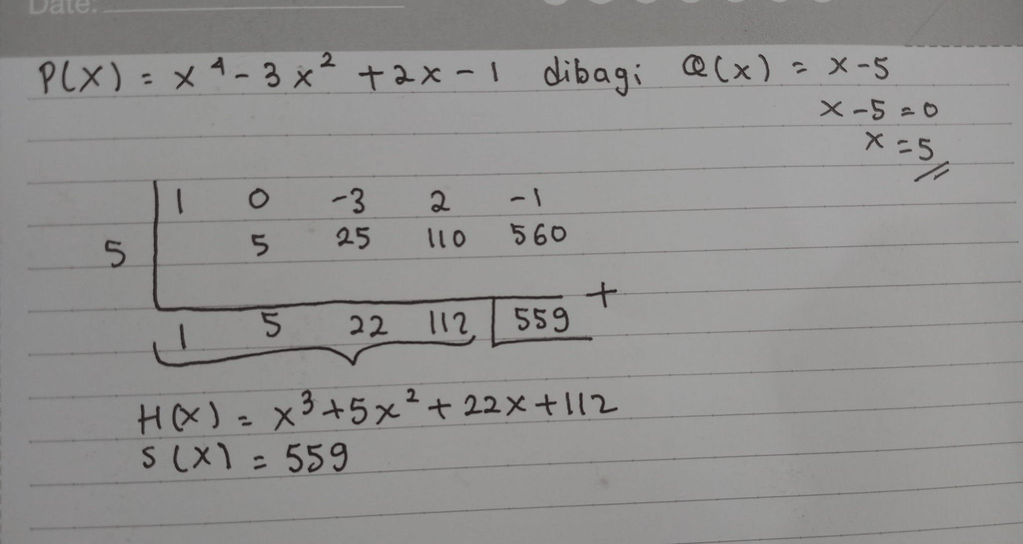 Date:
P(x) = x⁴ - 3x² + 2x - 1 dibagi Q(x) = x - 5
x - 5 = 0
x = 5
1 0 -3 2 -1
5 5 25 110 560
+
1 5 22 112 559
H(x) = x³ + 5x² + 22x + 112
S(x) = 559